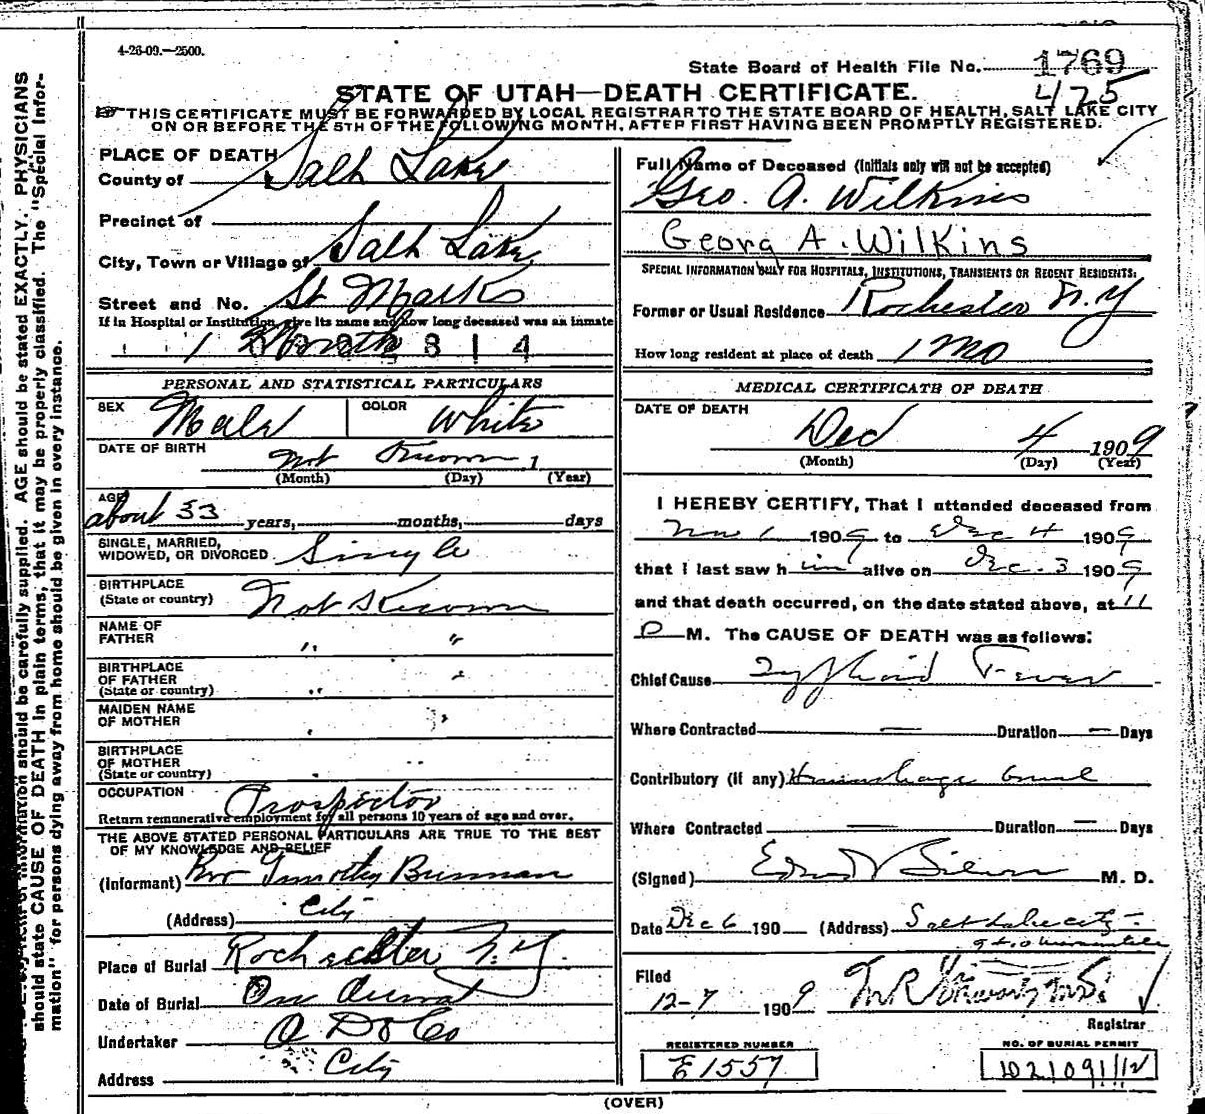 4-26-09.—2500.
State Board of Health File No. 1769
425
STATE OF UTAH—DEATH CERTIFICATE.
THIS CERTIFICATE MUST BE FORWARDED BY LOCAL REGISTRAR TO THE STATE BOARD OF HEALTH, SALT LAKE CITY
ON OR BEFORE THE 5TH OF THE FOLLOWING MONTH, AFTER FIRST HAVING BEEN PROMPTLY REGISTERED.
PLACE OF DEATH
County of Salt Lake
Precinct of
City, Town or Village of Salt Lake
Street and No. St Marks
If in Hospital or Institution, give its name and how long deceased was an inmate
1 Month
814
PERSONAL AND STATISTICAL PARTICULARS
SEX Male COLOR White
DATE OF BIRTH Not Known 1
(Month) (Day) (Year)
AGE about 53 years, months, days
SINGLE, MARRIED,
WIDOWED, OR DIVORCED Single
BIRTHPLACE
(State or country) Not Known
NAME OF
FATHER " "
BIRTHPLACE
OF FATHER
(State or country) " "
MAIDEN NAME
OF MOTHER
BIRTHPLACE
OF MOTHER
(State or country)
OCCUPATION Prospector
Return remunerative employment for all persons 10 years of age and over.
THE ABOVE STATED PERSONAL PARTICULARS ARE TRUE TO THE BEST
OF MY KNOWLEDGE AND BELIEF
(Informant) Bro Timothy Brisnan
(Address) City
Place of Burial Rochester N.Y.
Date of Burial On
Undertaker O D & Co
Address City
Full Name of Deceased (Initials only will not be accepted)
Geo. A. Wilkins
Georg A. Wilkins
SPECIAL INFORMATION ONLY FOR HOSPITALS, INSTITUTIONS, TRANSIENTS OR RECENT RESIDENTS:
Former or Usual Residence Rochester N.Y
How long resident at place of death 1 mo
MEDICAL CERTIFICATE OF DEATH
DATE OF DEATH
Dec 4 1909
(Month) (Day) (Year)
I HEREBY CERTIFY, That I attended deceased from
Nov 1 1909 to Dec 4 1909
that I last saw him alive on Dec. 3 1909
and that death occurred, on the date stated above, at 11
P M. The CAUSE OF DEATH was as follows:
Chief Cause Typhoid Fever
Where Contracted — Duration — Days
Contributory (if any) Hemorrhage bowel
Where Contracted — Duration — Days
(Signed) M. D.
Date Dec 6 190 (Address) Salt Lake City
Filed
12-7 1909
Registrar
REGISTERED NUMBER
E 1557
NO. OF BURIAL PERMIT
(OVER)
should be carefully supplied. AGE should be stated EXACTLY. PHYSICIANS
should state CAUSE OF DEATH in plain terms, that it may be properly classified. The "Special Infor-
mation" for persons dying away from home should be given in every instance.